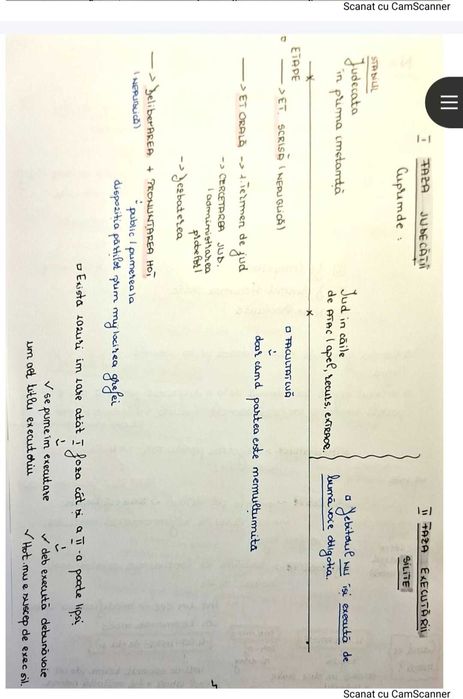 Scanat cu CamScanner
I FAZA JUDECĂȚII
Cuprinde:
II FAZA EXECUTĂRII
SILITE
STADIUL
Judecata
în prima instanță
Jud în căile
de ATAC (apel, recurs, extraor.
□ Debitorul NU își execută de
bună voie obligația.
□ ETAPE
→ ET. SCRISĂ (NEPUBLICĂ)
→ ET ORALĂ → 1. Termen de jud
→ CERCETAREA JUD.
(administrarea
probelor)
→ Dezbaterea
→ Deliberarea + PRONUNȚAREA HOT
(NEPUBLICĂ)
↓
public / punerea la
dispoziția părților prin mijlocirea grefei
□ FACULTATIVĂ
↓
doar când partea este nemulțumită
□ Există cazuri în care atât I faza cât și a II-a poate lipsi
↓
✓ se pune în executare
un alt titlu executoriu
↓
✓ deb execută de bună voie
✓ Hot. nu e suscep de exec sil.
Scanat cu CamScanner